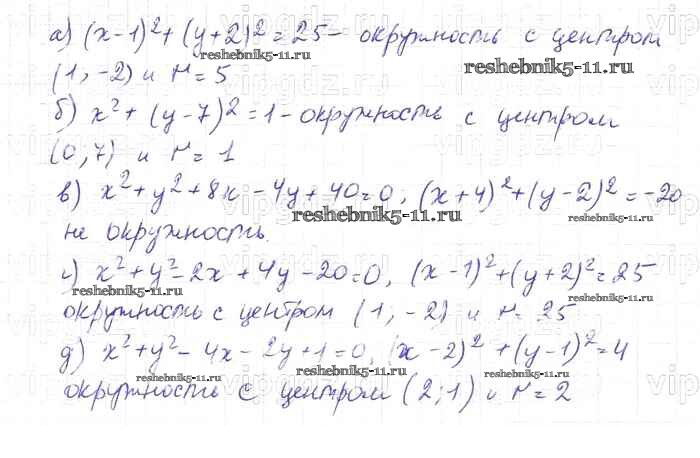 а) (x-1)²+(y+2)²=25 - окружность с центром
(1,-2) и r=5
б) x²+(y-7)²=1 - окружность с центром
(0,7) и r=1
в) x²+y²+8x-4y+40=0, (x+4)²+(y-2)²=-20
не окружность.
г) x²+y²-2x+4y-20=0, (x-1)²+(y+2)²=25
окружность с центром (1,-2) и r=25
д) x²+y²-4x-2y+1=0, (x-2)²+(y-1)²=4
окружность с центром (2;1) и r=2
reshebnik5-11.ru
reshebnik5-11.ru
reshebnik5-11.ru
reshebnik5-11.ru
reshebnik5-11.ru
reshebnik5-11.ru
reshebnik5-11.ru
reshebnik5-11.ru